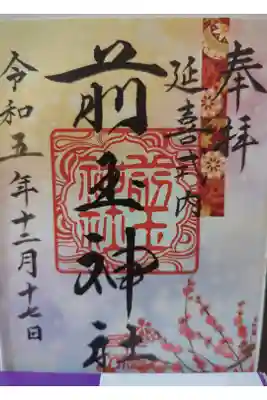 奉拝
延喜式内
前玉神社
前玉
神社
令和五年十二月十七日